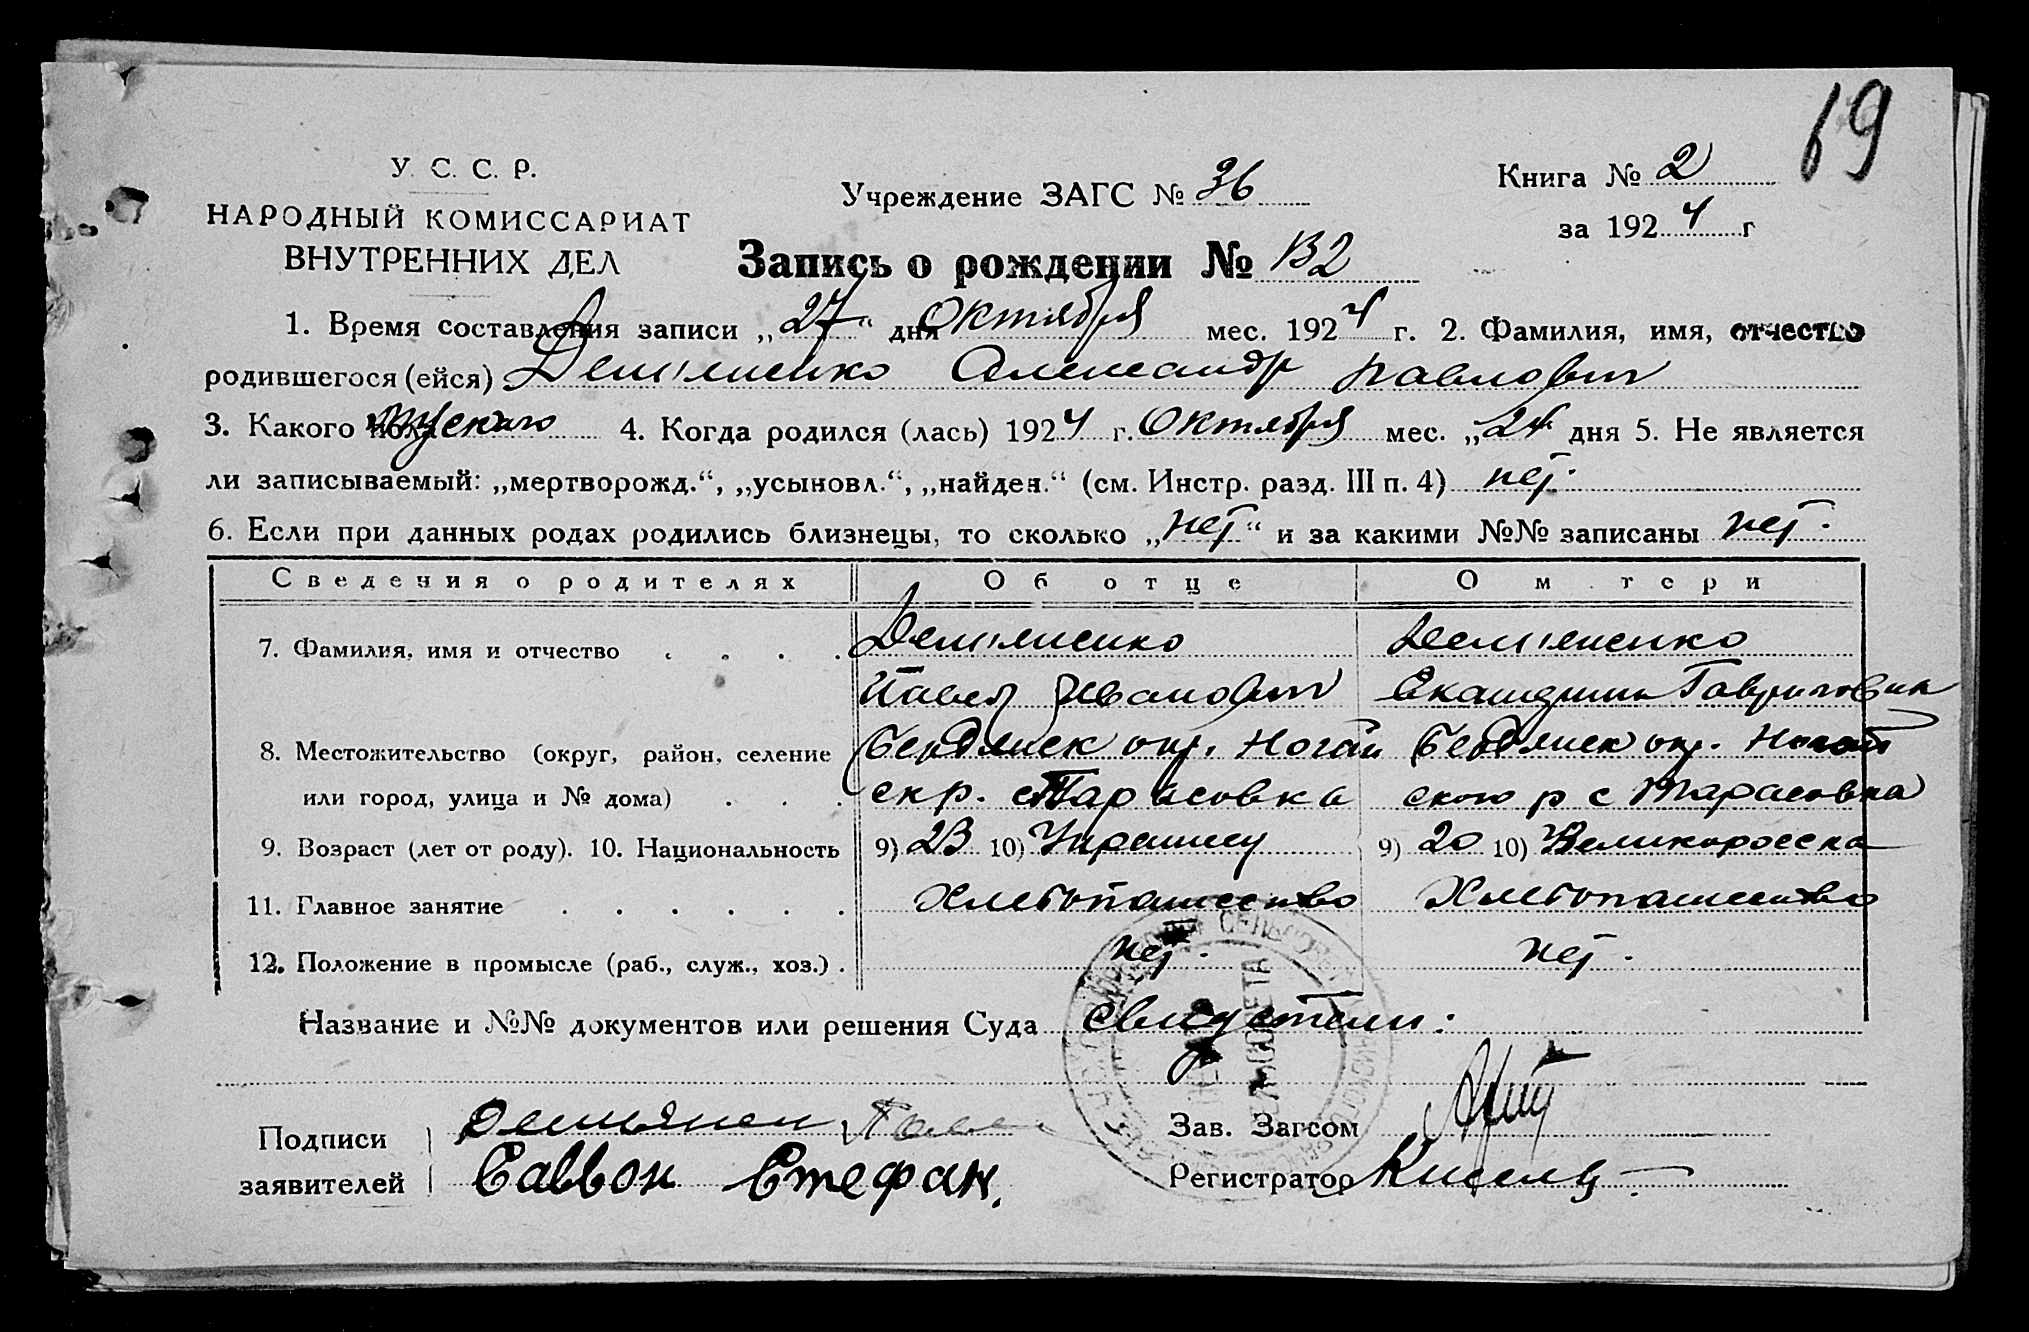 69
У. С. С. Р.
НАРОДНЫЙ КОМИССАРИАТ
ВНУТРЕННИХ ДЕЛ
Учреждение ЗАГС № 36
Книга № 2
за 1924 г
Запись о рождении № 132
1. Время составления записи „27“ дня Октября мес. 1924 г. 2. Фамилия, имя, отчество
родившегося (ейся) Демьяненко Александр Павлович
3. Какого пола мужскаго 4. Когда родился (лась) 1924 г. Октября мес. „24 дня 5. Не является
ли записываемый: „мертворожд.“, „усыновл.“, „найден.“ (см. Инстр. разд. III п. 4) нет.
6. Если при данных родах родились близнецы, то сколько „нет“ и за какими №№ записаны нет.
Сведения о родителях Об отце О м тери
7. Фамилия, имя и отчество Демьяненко Демьяненко
Павел Иванович Екатерина Гавриловна
8. Местожительство (округ, район, селение Бердянск окр. Ногай Бердянск окр. Ногай
или город, улица и № дома) ск р. с Тарасовка ского р с Тарасовка
9. Возраст (лет от роду). 10. Национальность 9) 23 10) Украинец 9) 20 10) Великоросска
11. Главное занятие Хлебопашество Хлебопашество
12. Положение в промысле (раб., служ., хоз.) нет. нет.
Название и №№ документов или решения Суда
Подписи Демьянен Павел Зав. Загсом
заявителей Саввон Стефан. Регистратор